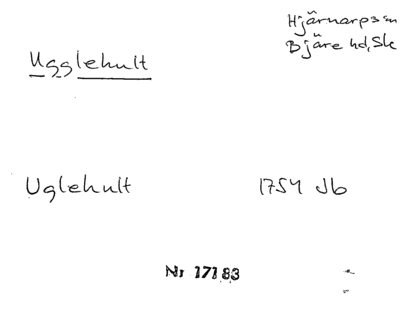 Hjärnarps sn
Bjäre hd, Sk
Ugglehult
Uglehult 1754 Jb
Nr 17183